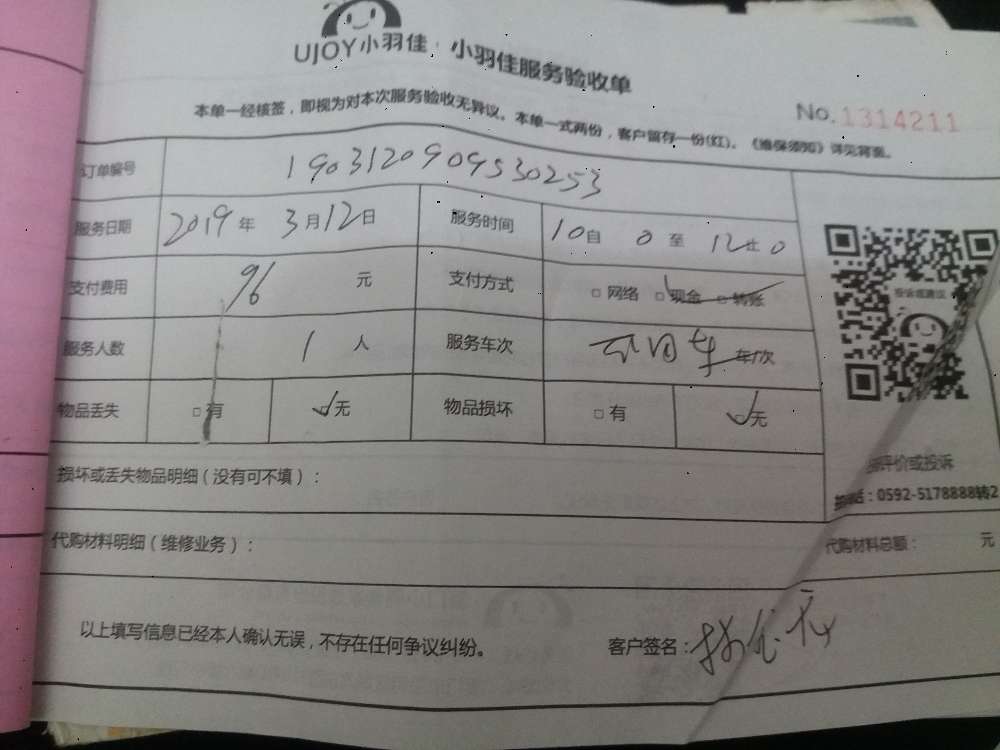 UJOY小羽佳 小羽佳服务验收单
No.1314211
本单一经核签，即视为对本次服务验收无异议。本单一式两份，客户留存一份(红)。《维保须知》详见背面。
订单编号 190312090953025​3
服务日期 2019年 3月12日 服务时间 10自 0 至 12 0
支付费用 96 元 支付方式 □网络 □现金 □转账
服务人数 1 人 服务车次 车/次
物品丢失 □有 ☑无 物品损坏 □有 ☑无
评价或投诉
损坏或丢失物品明细（没有可不填）：
话：0592-5178888转2
代购材料明细（维修业务）： 代购材料总额： 元
以上填写信息已经本人确认无误，不存在任何争议纠纷。 客户签名：